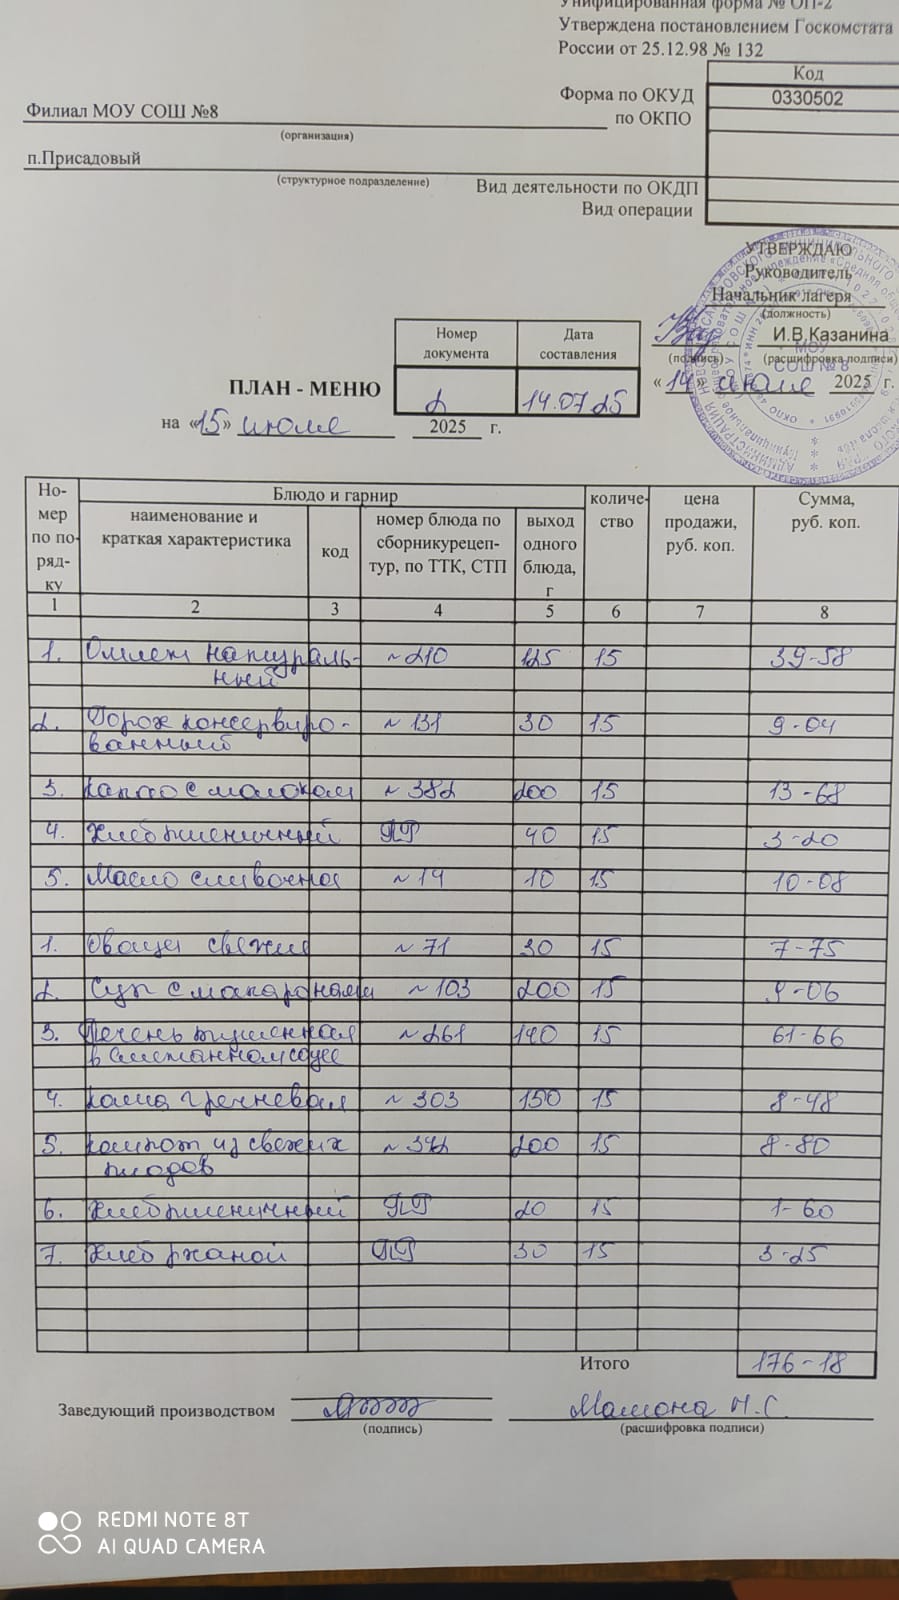 Унифицированная форма № ОП-2
Утверждена постановлением Госкомстата
России от 25.12.98 № 132
Код
Форма по ОКУД 0330502
Филиал МОУ СОШ №8
по ОКПО
(организация)
п.Присадовый
(структурное подразделение)
Вид деятельности по ОКДП
Вид операции
УТВЕРЖДАЮ
Руководитель
Начальник лагеря
(должность)
И.В.Казанина
(подпись) (расшифровка подписи)
« 14 » июля 2025 г.
МОУ
СОШ № 8
Номер документа Дата составления
ПЛАН - МЕНЮ 2 14.07 25
на «15» июле 2025 г.
Но-мер по по-ряд-ку Блюдо и гарнир количе-ство цена продажи, руб. коп. Сумма, руб. коп.
наименование и краткая характеристика код номер блюда по сборникурецеп-тур, по ТТК, СТП выход одного блюда, г
1 2 3 4 5 6 7 8
1. Омлет натураль- ~210 125 15 39-58
ный
2. Горох консервиро- ~131 30 15 9-04
ванный
3. какао с молоком ~382 200 15 13-68
4. Хлеб пшеничный ПР 40 15 3-20
5. Масло сливочное ~14 10 15 10-08
1. Овощи свежие ~71 30 15 7-75
2. Суп с макаронами ~103 200 15 9-06
3. Печень тушенная ~261 140 15 61-66
в сметанном соусе
4. каша гречневая ~303 150 15 8-48
5. компот из свежих ~342 200 15 8-80
плодов
6. Хлеб пшеничный ПР 20 15 1-60
7. Хлеб ржаной ПР 30 15 3-25
Итого 176-18
Заведующий производством Мамона Н.С.
(подпись) (расшифровка подписи)
REDMI NOTE 8T
AI QUAD CAMERA